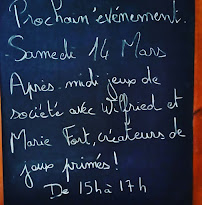 Prochain événement.
Samedi 14 Mars
Après-midi jeux de
société avec Wilfried et
Marie Fort, créateurs de
jeux primés !
De 15h à 17h